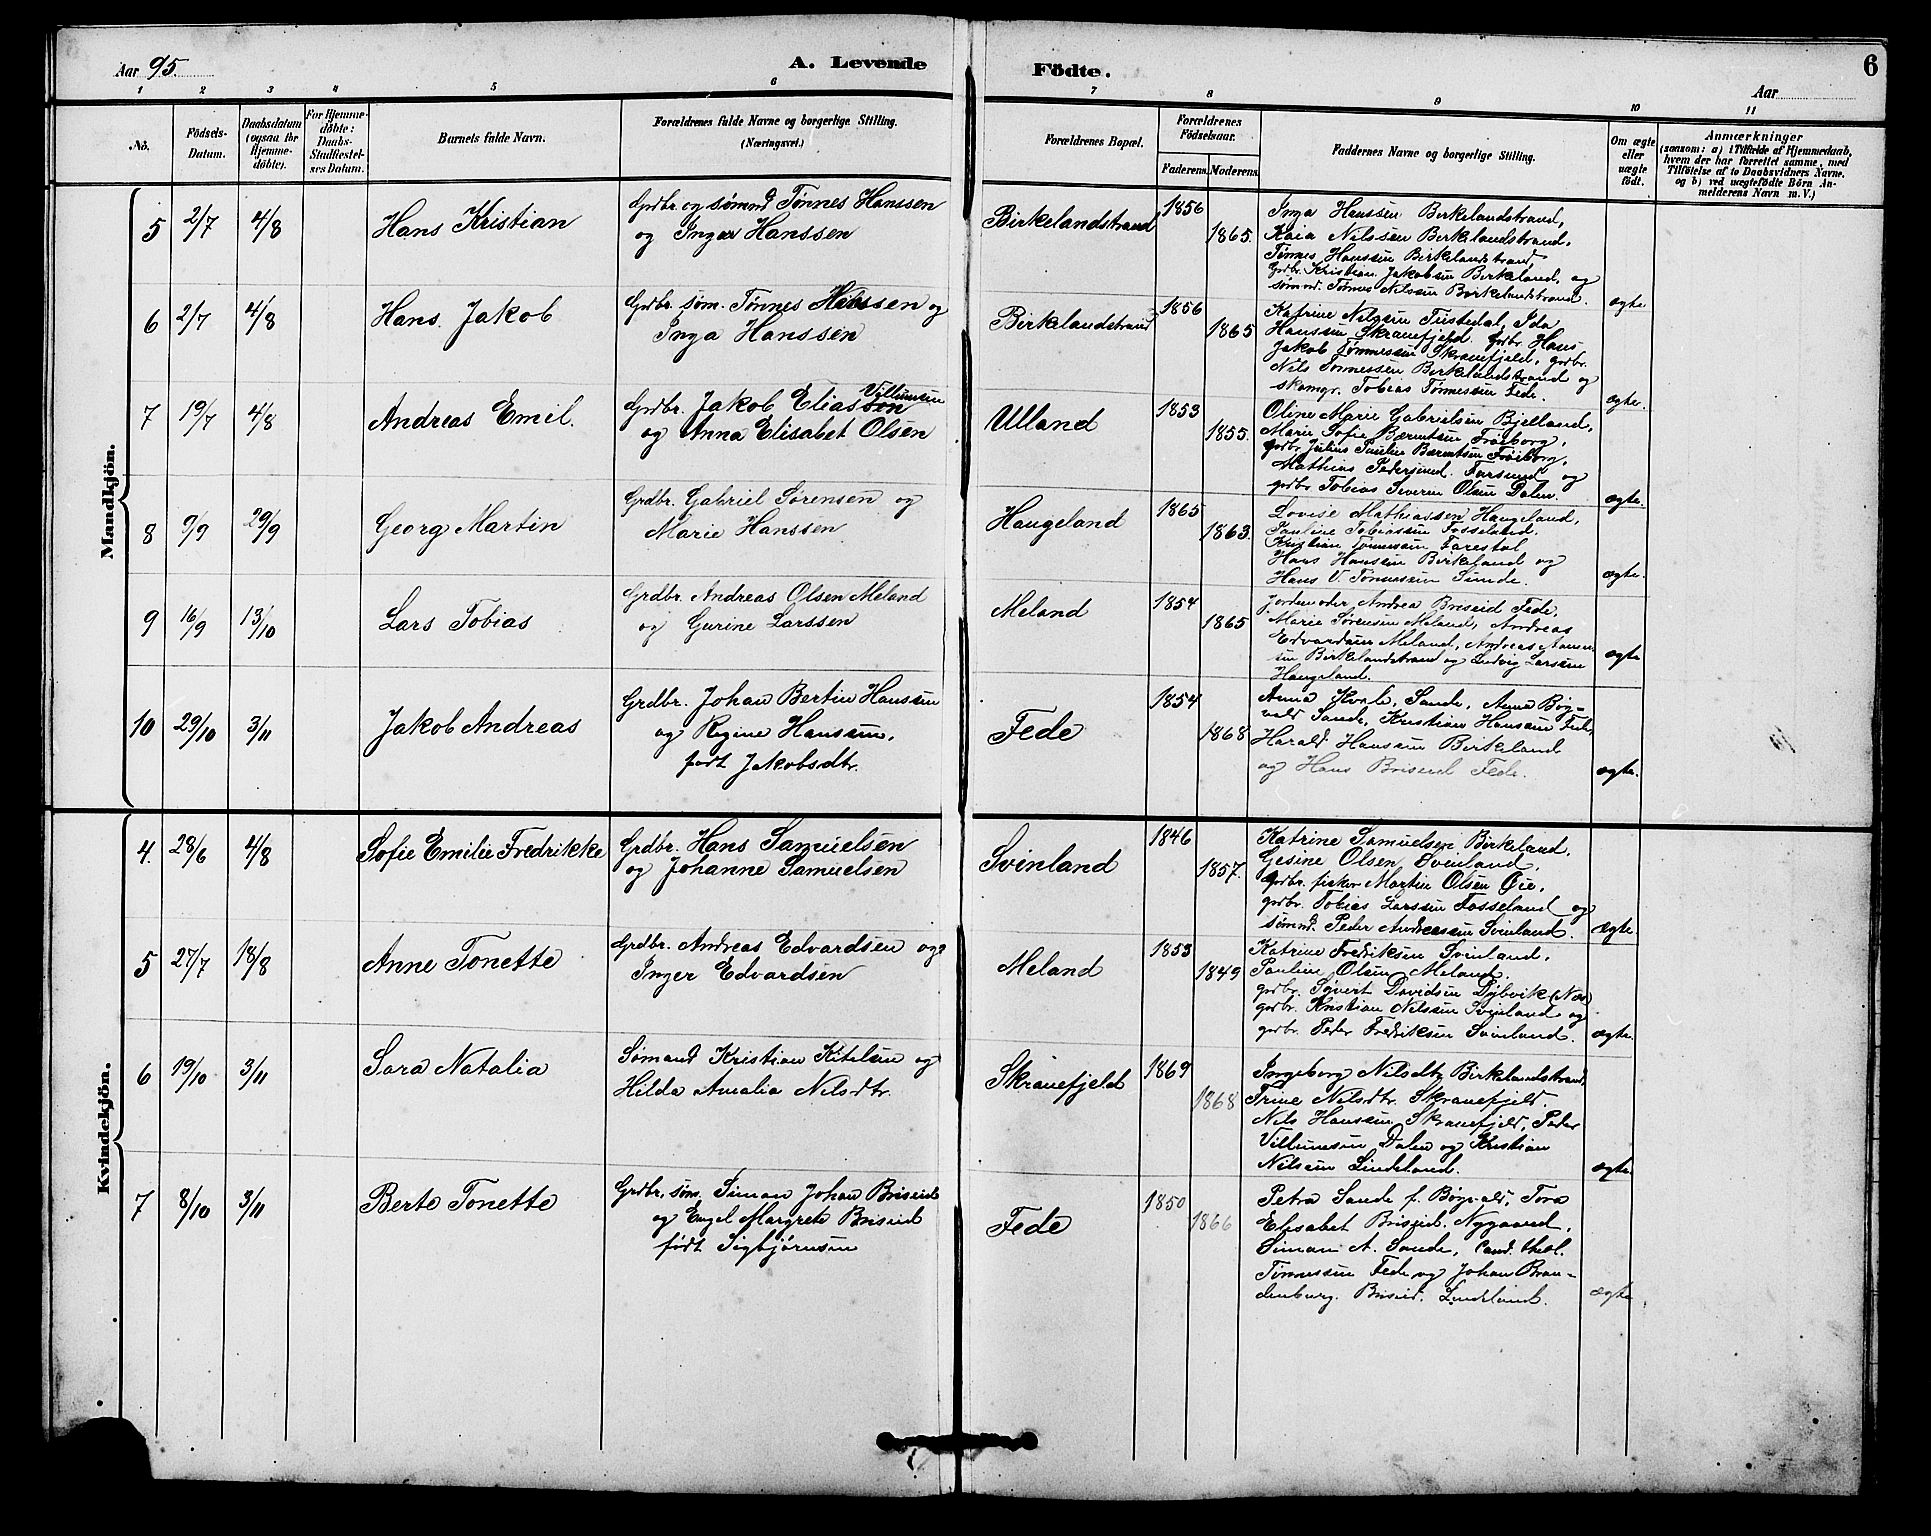 Aar 95.
A. Levende
Födte.
6
Aar
1 2 3 4 5 6 7 8 9 10 11
No.
Födsels-
Datum.
Daabsdatum
(ogsaa for
Hjemme-
döbte).
For Hjemme-
döbte:
Daabs-
Stadfæstel-
ses Datum.
Barnets fulde Navn.
Forældrenes fulde Navne og borgerlige Stilling.
(Næringsvei.)
Forældrenes Bopæl.
Forældrenes
Födselsaar.
Faderens.
Moderens.
Faddernes Navne og borgerlige Stilling.
Om ægte
eller
uægte
födt.
Anmærkninger
(saasom: a) i Tilfælde af Hjemmedaab,
hvem der har forrettet samme, med
Tilföielse af to Daabsvidners Navne,
og b) ved uægtefödte Börn An-
melderens Navn m. V.)
Mandkjön.
5 2/7 4/8 Hans Kristian
Grdbr. og sømnd Tønnes Hanssen
og Inger Hanssen
Birkelandstrand 1856 1865.
Inga Hanssen Birkelandstrand,
Kaia Nilssen Birkelandstrand,
Tønnes Hanssen Birkelandstrand,
Grdbr. Kristian Jakobsen Birkeland, og
sømnd. Tønnes Nilssen Birkelandstrand.
ægte.
6 2/7 4/8 Hans Jakob
Grdbr. søm. Tønnes Hanssen og
Inga Hanssen
Birkelandstrand 1856 1865
Katrine Nilssen Tistedal, Ida
Hanssen Skranefjeld. grdbr. Hans
Jakob Tønnessen Skranefjeld, grdbr.
Nils Tønnessen Birkelandstrand og
skomgr. Tobias Tønnessen Fede.
ægte.
7 19/7 4/8 Andreas Emil.
Villumsen
Grdbr. Jakob Eliassen
og Anna Elisabet Olsen
Ulland 1853 1855.
Oline Marie Gabrielsen Bjelland,
Marie Sofie Bærntsen Frøiborg,
grdbr. Julius Paulin Bærntsen Frøiborg,
Mathias Pedersen Farsund og
grdbr. Tobias Severin Olsen Dalen.
ægte.
8 9/9 29/9 Georg Martin
Grdbr. Gabriel Sørensen og
Marie Hanssen
Haugeland 1865 1863.
Lovise Mathiassen Haugeland,
Pauline Tobiassen Fosseland.
Kristian Tønnessen Farestal
Hans Hanssen Birkeland og
Hans V. Tønnessen Sunde.
ægte.
9 16/9 13/10 Lars Tobias
Grdbr. Andreas Olsen Meland
og Gurine Larssen
Meland 1854 1865
Jordemoder Andrea Briseid Fede,
Marie Sørensen Meland, Andreas
Edvardsen Meland, Andreas Aanen-
sen Birkelandstrand og Ludvig Larssen
Haugeland.
ægte
10 29/10 3/11 Jakob Andreas
Grdbr. Johan Bertin Hanssen
og Regine Hanssen,
født Jakobsdtr.
Fede 1854 1868
Anna Sande, Anna Bøg-
vald Sande, Kristian Hanssen Fede,
Harald Hanssen Birkeland
og Hans Briseid Fede.
ægte.
Kvindekjön.
4. 28/6 4/8 Sofie Emilie Fredrikke
Grdbr. Hans Samuelsen
og Johanne Samuelsen
Svinland 1846 1857.
Katrine Samuelsen Birkeland,
Gesine Olsen Svinland,
grdbr. fisker Martin Olsen Øie,
grdbr. Tobias Larssen Fosseland og
sømnd. Peder Andreassen Svinland.
ægte.
5 27/7 18/8 Anne Tonette
Grdbr. Andreas Edvardsen og
Inger Edvardsen
Meland 1853 1849
Katrine Fredriksen Svinland,
Pauline Olsen Meland,
grdbr. Syvert Davidsen Dybvik (Næs)
grdbr. Kristian Nilssen Svinland og
grdbr. Peder Fredriksen Svinland.
ægte.
6 19/10 3/11 Sara Natalia
Sømand Kristian Kitelsen og
Hilda Amalia Nilsdtr.
Skranefjeld 1869 1868
Ingeborg Nilsdtr. Birkelandstrand
Trine Nilsdtr. Skranefjeld.
Nils Hanssen Skranefjeld, Peder
Villumsen Dalen og Kristian
Nilssen Lindeland.
ægte.
7 8/10 3/11 Berte Tonette
Grdbr. søm. Simon Johan Briseid
og Engel Margrete Briseid
født Sigbjørnsen
Fede 1850 1866
Petra Sande f. Bøgvald, Tora
Elisabet Briseid. Nygaard,
Simon A. Sande, Cand. theol.
Tønnessen Fede og Johan Bran-
denburg Briseid. Lindeland.
ægte.